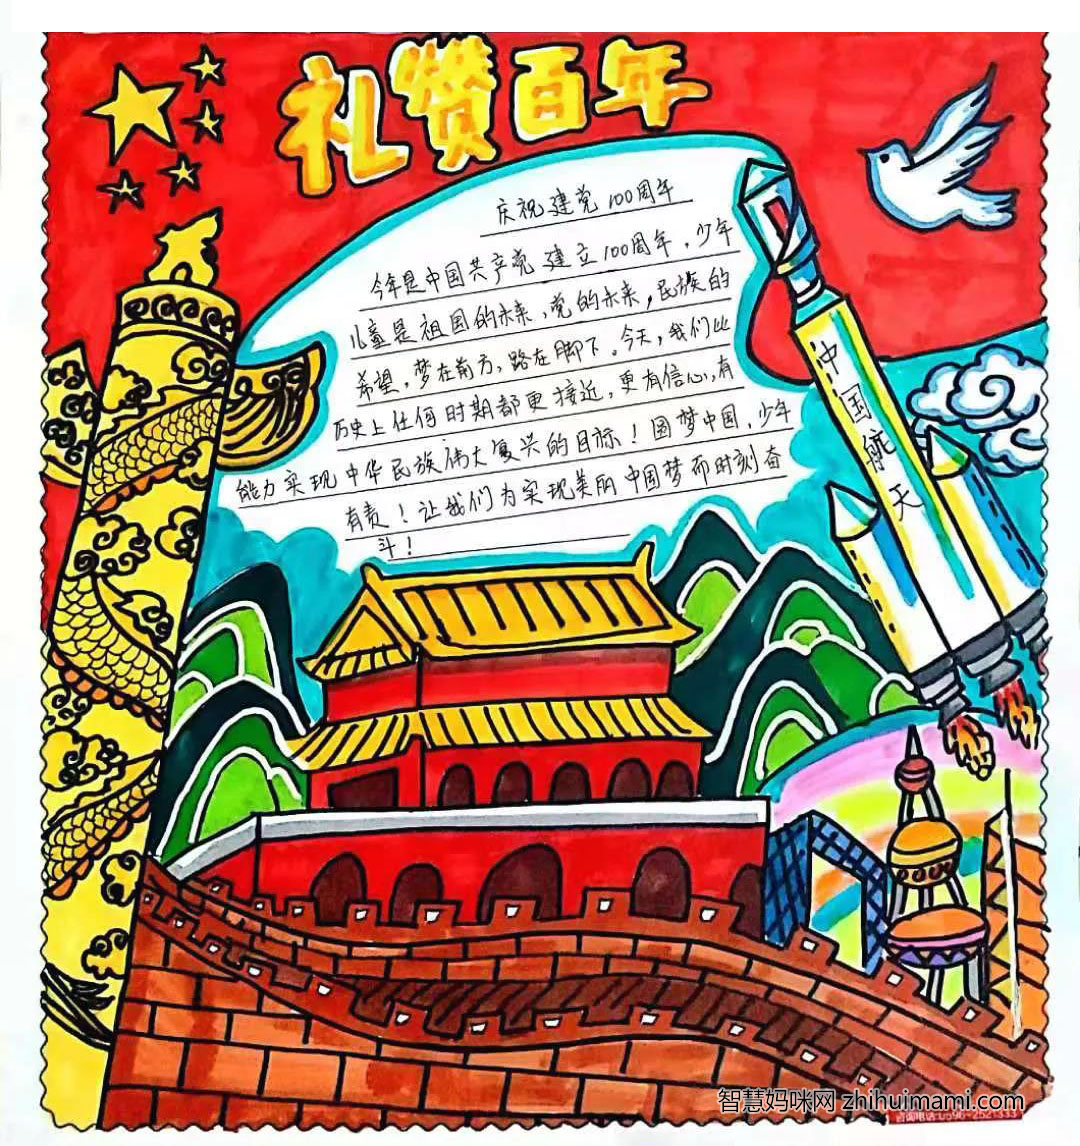 礼赞百年
庆祝建党100周年
今年是中国共产党建立100周年，少年
儿童是祖国的未来，党的未来，民族的
希望，梦在前方，路在脚下。今天，我们比
历史上任何时期都更接近，更有信心，有
能力实现中华民族伟大复兴的目标！圆梦中国，少年
有责！让我们为实现美丽中国梦而时刻奋
斗！
中国航天
智慧妈咪网 zhihuimami.com
咨询电话:0596-2521333